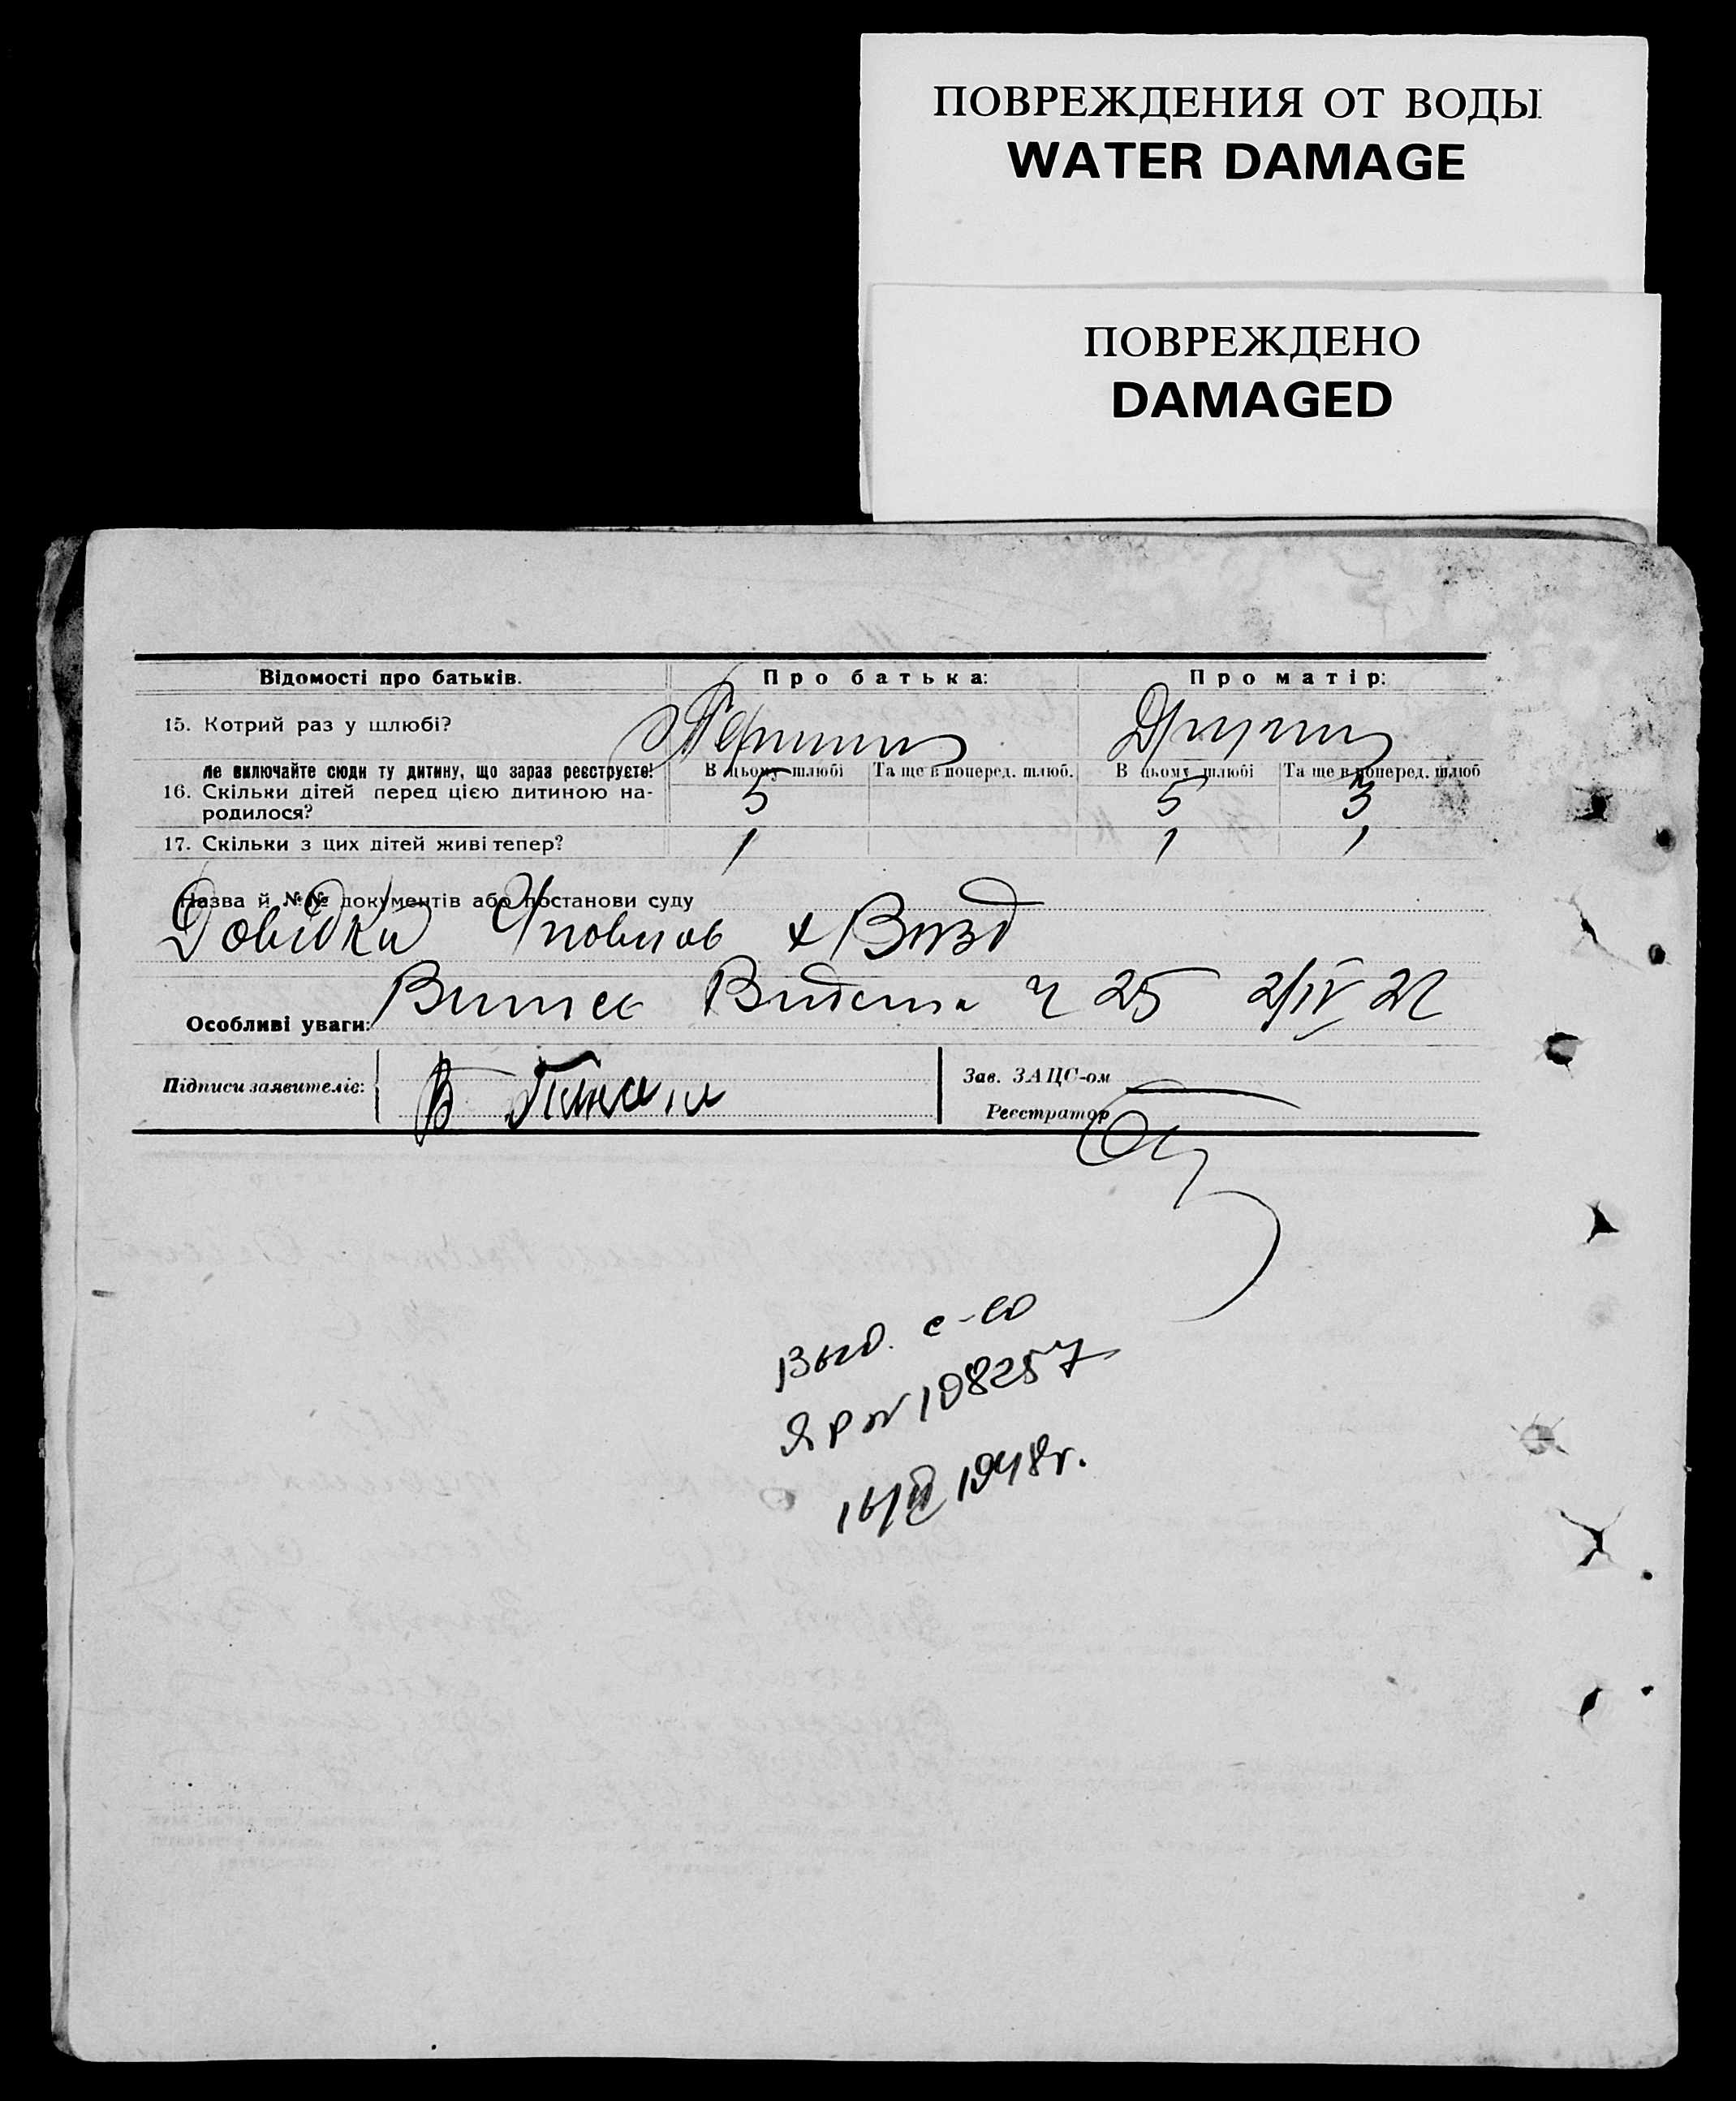 ПОВРЕЖДЕНИЯ ОТ ВОДЫ
WATER DAMAGE
ПОВРЕЖДЕНО
DAMAGED
Відомості про батьків. Про батька: Про матір:
15. Котрий раз у шлюбі? Перший Другий
Не включайте сюди ту дитину, що зараз реєструєте! В цьому шлюбі Та ще в поперед. шлюб. В цьому шлюбі Та ще в поперед. шлюб
16. Скільки дітей перед цією дитиною на-
родилося? 5 5 3
17. Скільки з цих дітей живі тепер? 1 1 1
Назва й №№ документів або постанови суду
Довідки
Особливі уваги: Ч 25 2/IV 27
Підписи заявителів: В
Зав. ЗАЦС-ом
Реєстратор
Выд. с-во
108257
1948г.